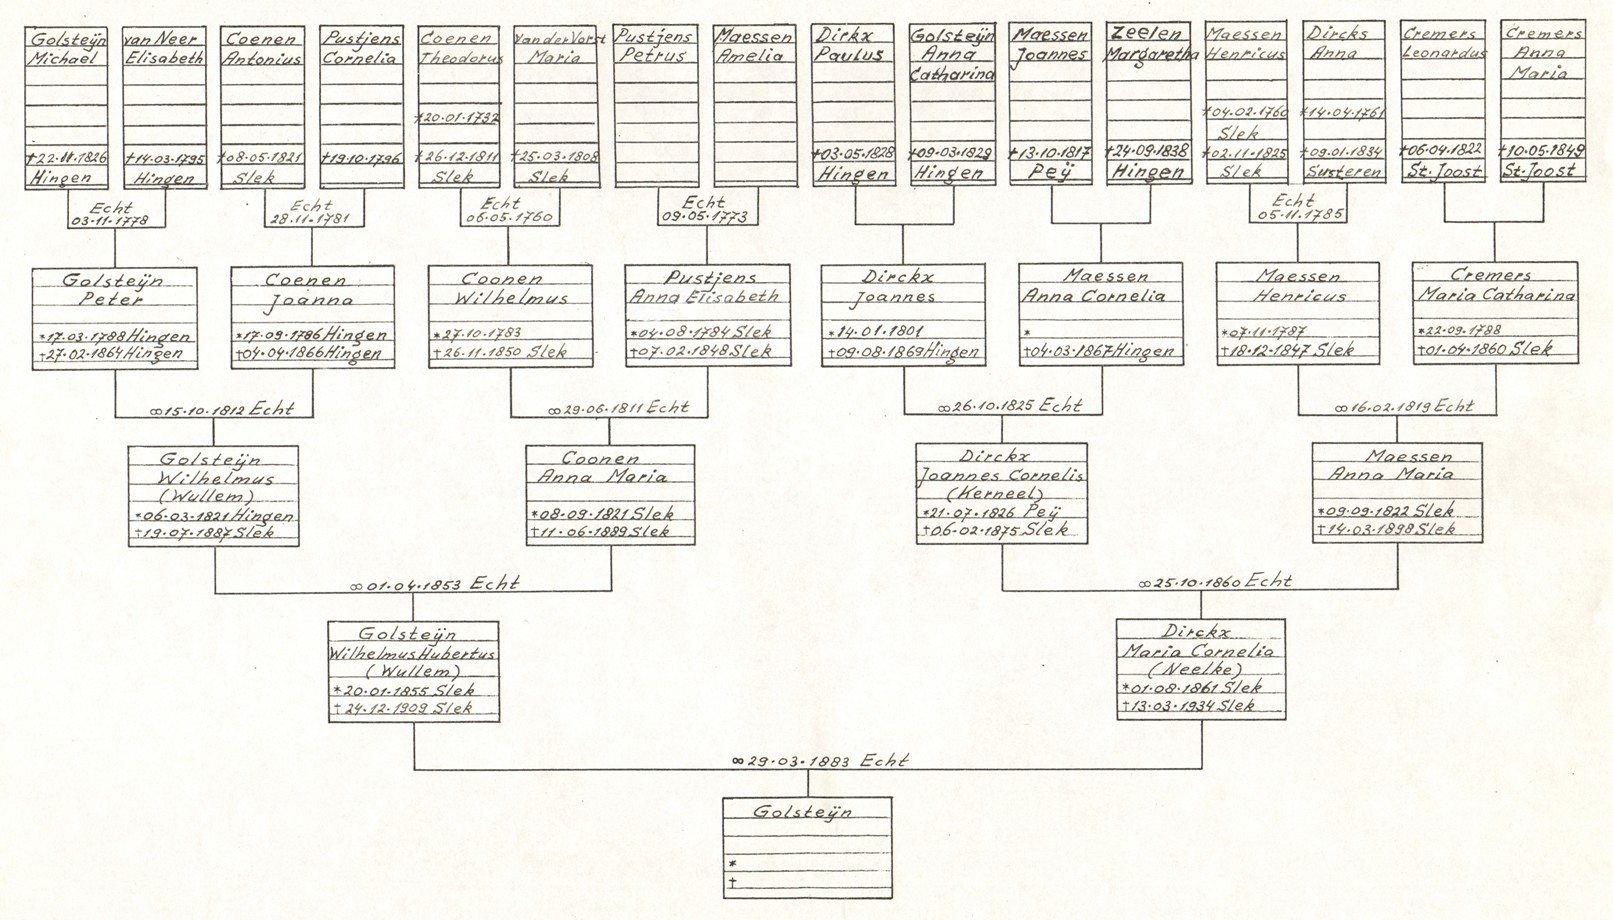 Golsteÿn
Michael
†22.11.1826
Hingen
van Neer
Elisabeth
†14.03.1795
Hingen
Coenen
Antonius
†08.05.1821
Slek
Pustjens
Cornelia
†19.10.1796
Coenen
Theodorus
†20.01.1732
†26.12.1811
Slek
van der Vorst
Maria
†25.03.1808
Slek
Pustjens
Petrus
Maessen
Amelia
Dirkx
Paulus
†03.05.1828
Hingen
Golsteÿn
Anna
Catharina
†09.03.1829
Hingen
Maessen
Joannes
†13.10.1817
Peÿ
Zeelen
Margaretha
†24.09.1838
Hingen
Maessen
Henricus
†04.02.1760
Slek
†02.11.1825
Slek
Dircks
Anna
*14.04.1761
†09.01.1834
Susteren
Cremers
Leonardus
†06.04.1822
St. Joost
Cremers
Anna
Maria
†10.05.1849
St. Joost
Echt
03.11.1778
Echt
28.11.1781
Echt
06.05.1760
Echt
09.05.1773
Echt
05.11.1785
Golsteÿn
Peter
*17.03.1788 Hingen
†27.02.1864 Hingen
Coenen
Joanna
*17.09.1786 Hingen
†04.04.1866 Hingen
Coonen
Wilhelmus
*27.10.1783
†26.11.1850 Slek
Pustjens
Anna Elisabeth
*04.08.1784 Slek
†07.02.1848 Slek
Dirckx
Joannes
*14.01.1801
†09.08.1869 Hingen
Maessen
Anna Cornelia
*
†04.03.1867 Hingen
Maessen
Henricus
*07.11.1787
†18.12.1847 Slek
Cremers
Maria Catharina
*22.09.1788
†01.04.1860 Slek
∞15.10.1812 Echt
∞29.06.1811 Echt
∞26.10.1825 Echt
∞16.02.1819 Echt
Golsteÿn
Wilhelmus
(Wullem)
*06.03.1821 Hingen
†19.07.1887 Slek
Coonen
Anna Maria
*08.09.1821 Slek
†11.06.1889 Slek
Dirckx
Joannes Cornelis
(Kerneel)
*21.07.1826 Peÿ
†06.02.1875 Slek
Maessen
Anna Maria
*09.09.1822 Slek
†14.03.1898 Slek
∞01.04.1853 Echt
∞25.10.1860 Echt
Golsteÿn
Wilhelmus Hubertus
(Wullem)
*20.01.1855 Slek
†24.12.1909 Slek
Dirckx
Maria Cornelia
(Neelke)
*01.08.1861 Slek
†13.03.1934 Slek
∞29.03.1883 Echt
Golsteÿn
*
†